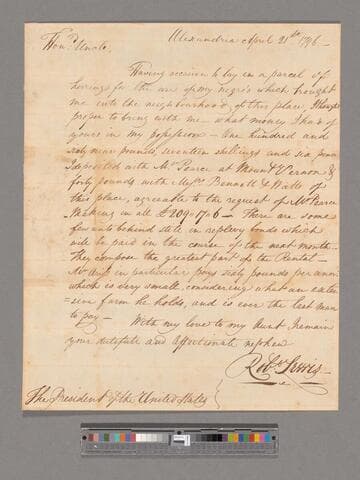 Alexandria April 21st 1796—
Hon'd Uncle,
Having occasion to buy in a parcel of
herrings for the use of my negro's which brought
me into the neighbourhood of this place, I thought
proper to bring with me what money I had of
yours in my possession — One hundred and
sixty nine pounds, seventeen shillings and six pence
I deposited with Mr Pearce at Mount Vernon &
forty pounds with Messrs Bennett & Watts of
this place, agreeable to the request of Mr Pearce
Making in all £209-17-6 — There are some
few rents behind still in replevy bonds which
will be paid in the course of the next month—
They compose the greatest part of the Rental—
Mr in particular pays sixty pounds per ann
which is very small, considering what an exten
=sive farm he holds, and is ever the last man
to pay — With my love to my Aunt I remain
your dutifull and affectionate nephew
Robt Lewis—
The President of the United States